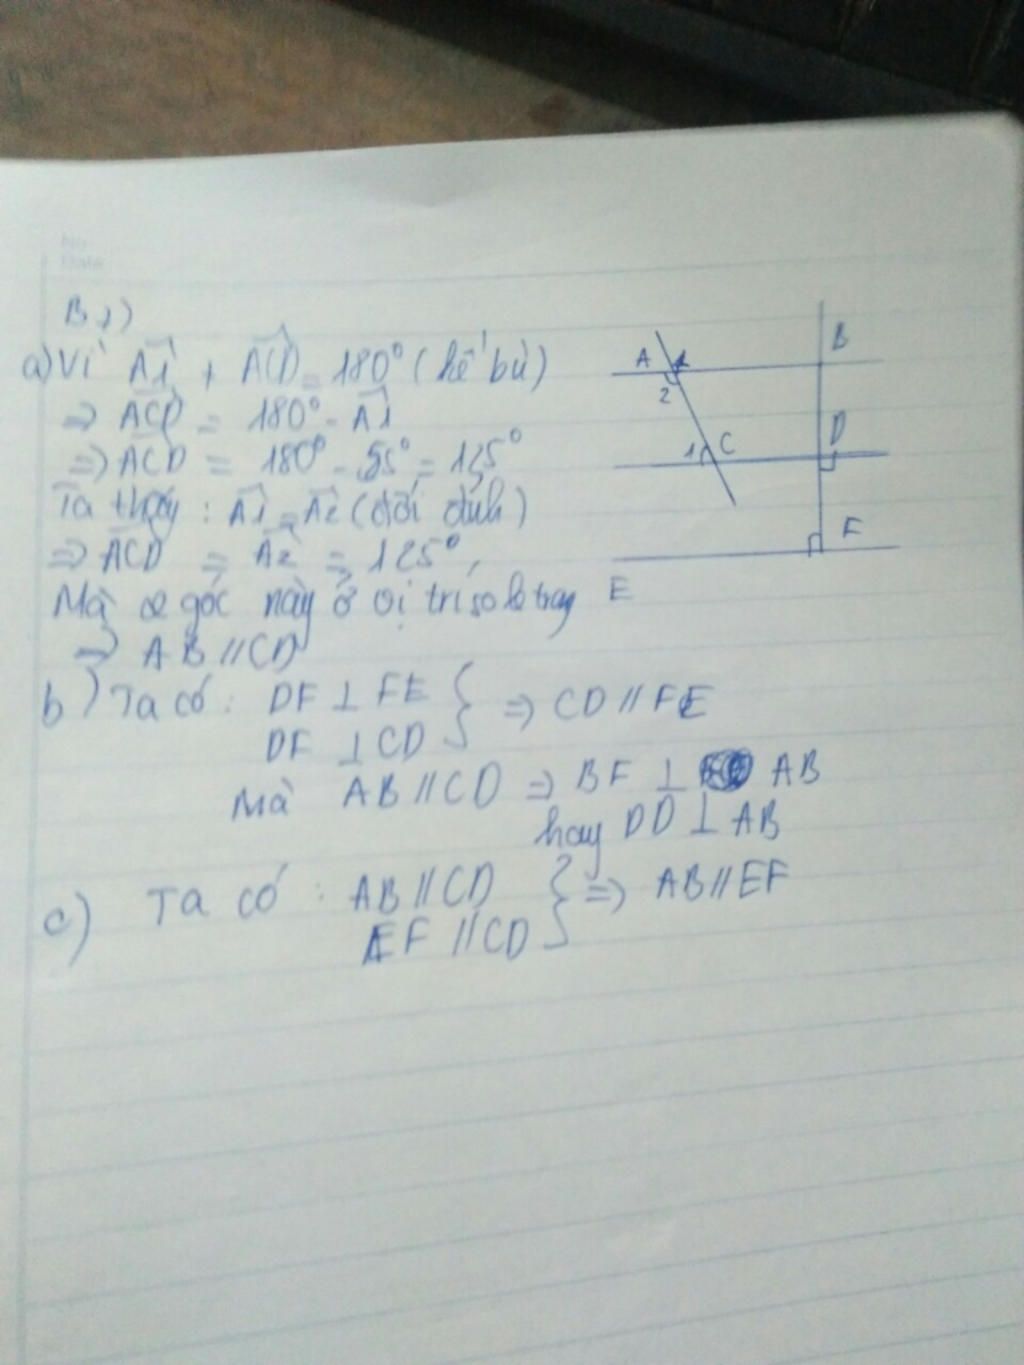 B1)
a) Vì A1 + ACD = 180° (kề bù)
=> ACD = 180° - A1
=> ACD = 180° - 55° = 125°
Ta thấy : A1 = A2 (đối đỉnh)
=> ACD = A2 = 125°,
Mà 2 góc này ở vị trí so le trong
=> AB // CD
b) Ta có : DF ⊥ FE } => CD // FE
DF ⊥ CD
Mà AB // CD => BF ⊥ AB
hay DD ⊥ AB
c) Ta có : AB // CD } => AB // EF
EF // CD
A 1 B
2
1 C D
F
E